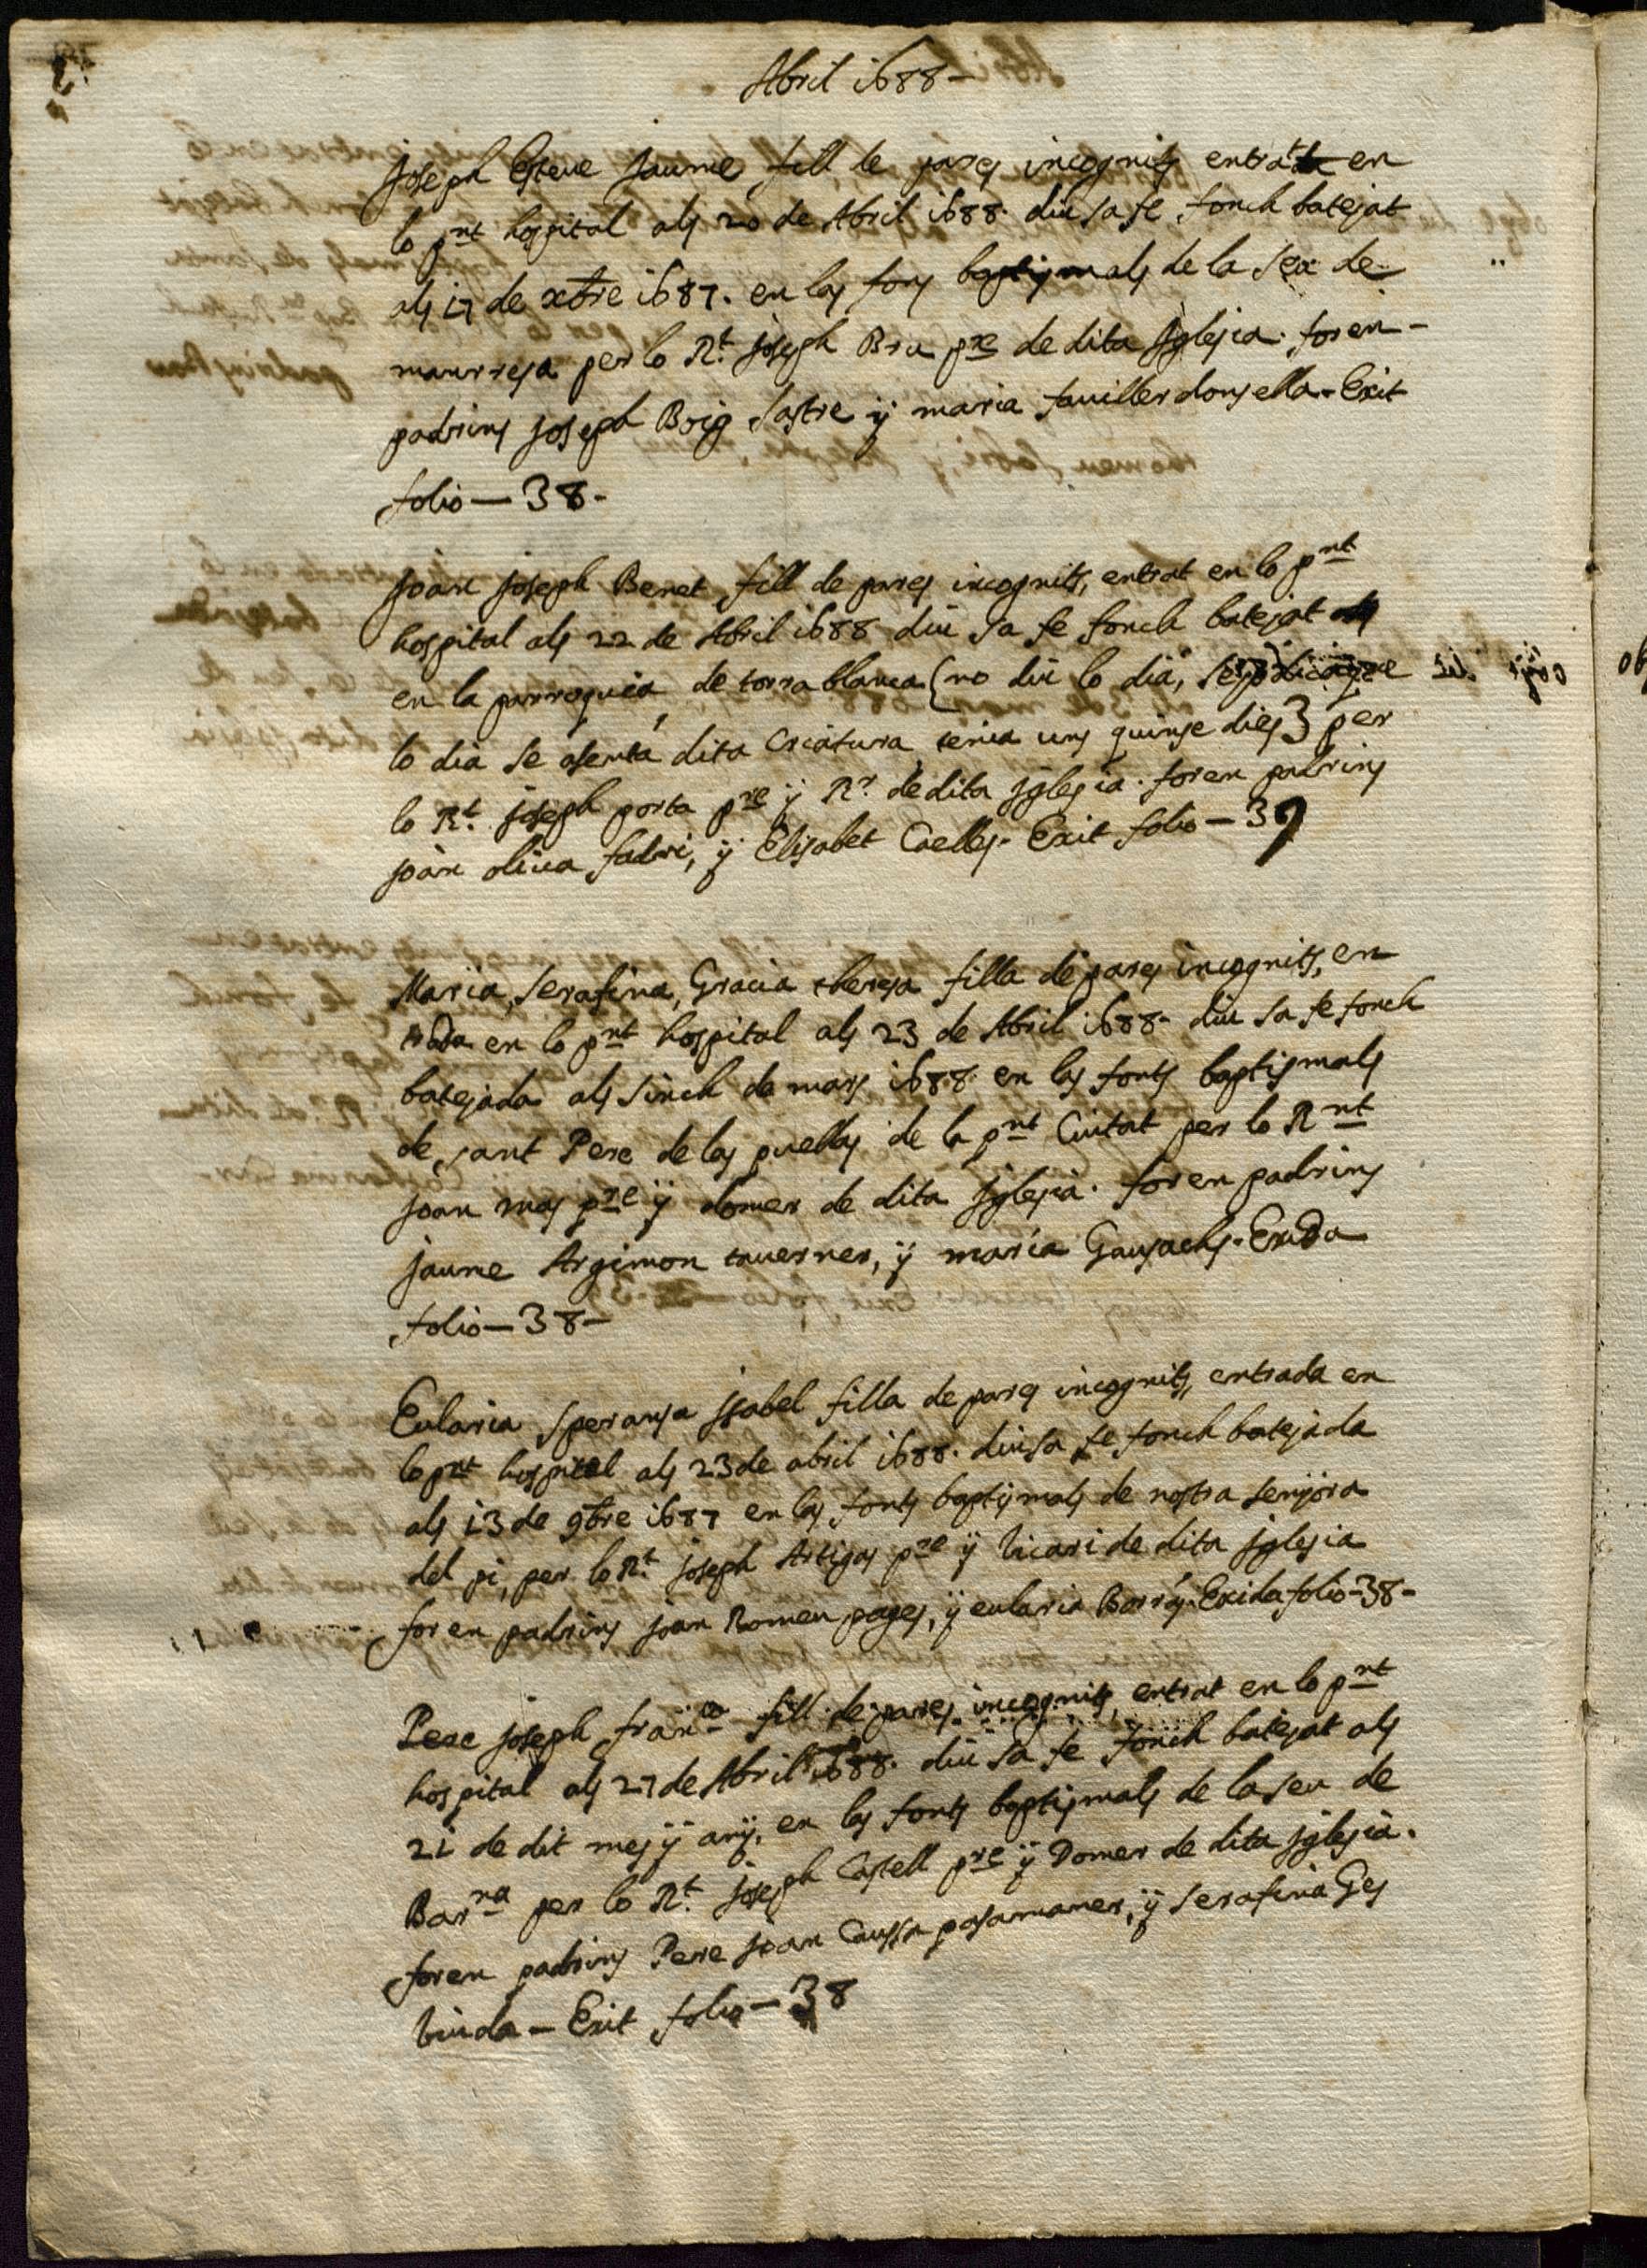 Abril 1688-
Joseph Esteue Jaume fill de pares incognits entrat en
lo pnt hospital als 20 de Abril 1688. diu sa fe fonch batejat
als 17 de xbre 1687. en las fons baptismals de la seu de
manrresa per lo Rt. Joseph Bru pre de dita Iglesia. foren-
padrins Joseph Boig sastre ÿ maria fauiller donsella-Exit
folio-38-
Joan Joseph Benet fill de pares incognits, entrat en lo pnt
hospital als 22 de Abril 1688 diu sa fe fonch batejat
en la parroquia de torrablanca (no diu lo dia,
lo dia se asenta dita Criatura tenia uns quinse dies) per
lo Rt. Joseph porta pre ÿ Rr. de dita Iglesia. foren padrins
Joan oliua fadri, ÿ Elisabet Caelles. Exit folio-39
Maria, Serafina, Gracia theresa filla de pares incognits, en
trada en lo pnt hospital als 23 de Abril 1688- diu sa fe fonch
batejada als sinch de mars 1688. en las fonts baptismals
de sant Pere de las puellas de la pnt Ciutat per lo Rnt
Joan mas pre ÿ domer de dita Iglesia. foren padrins
Jaume Argimon tauerner, ÿ maria Gausachs. Exida
folio-38-
Eularia Speransa Isabel filla de pares incognits, entrada en
lo pnt hospital als 23 de abril 1688. diu sa fe fonch batejada
als 13 de 9bre 1687 en las fonts baptismals de nostra senÿora
del pi, per lo Rt. Joseph Artigas pre ÿ Vicari de dita Iglesia
foren padrins Joan Romeu pages, ÿ eularia Borrás. Exida folio-38-
Pere Joseph franco fill de pares incognits, entrat en lo pnt
hospital als 27 de Abril 1688. diu sa fe fonch batejat als
21 de dit mes ÿ anÿ, en las fonts baptismals de la seu de
Barna per lo Rt. Joseph Castell pre ÿ Domer de dita Iglesia.
foren padrins Pere Joan Caussa pasamaner, ÿ Serafina Ges
viuda-Exit folio-38